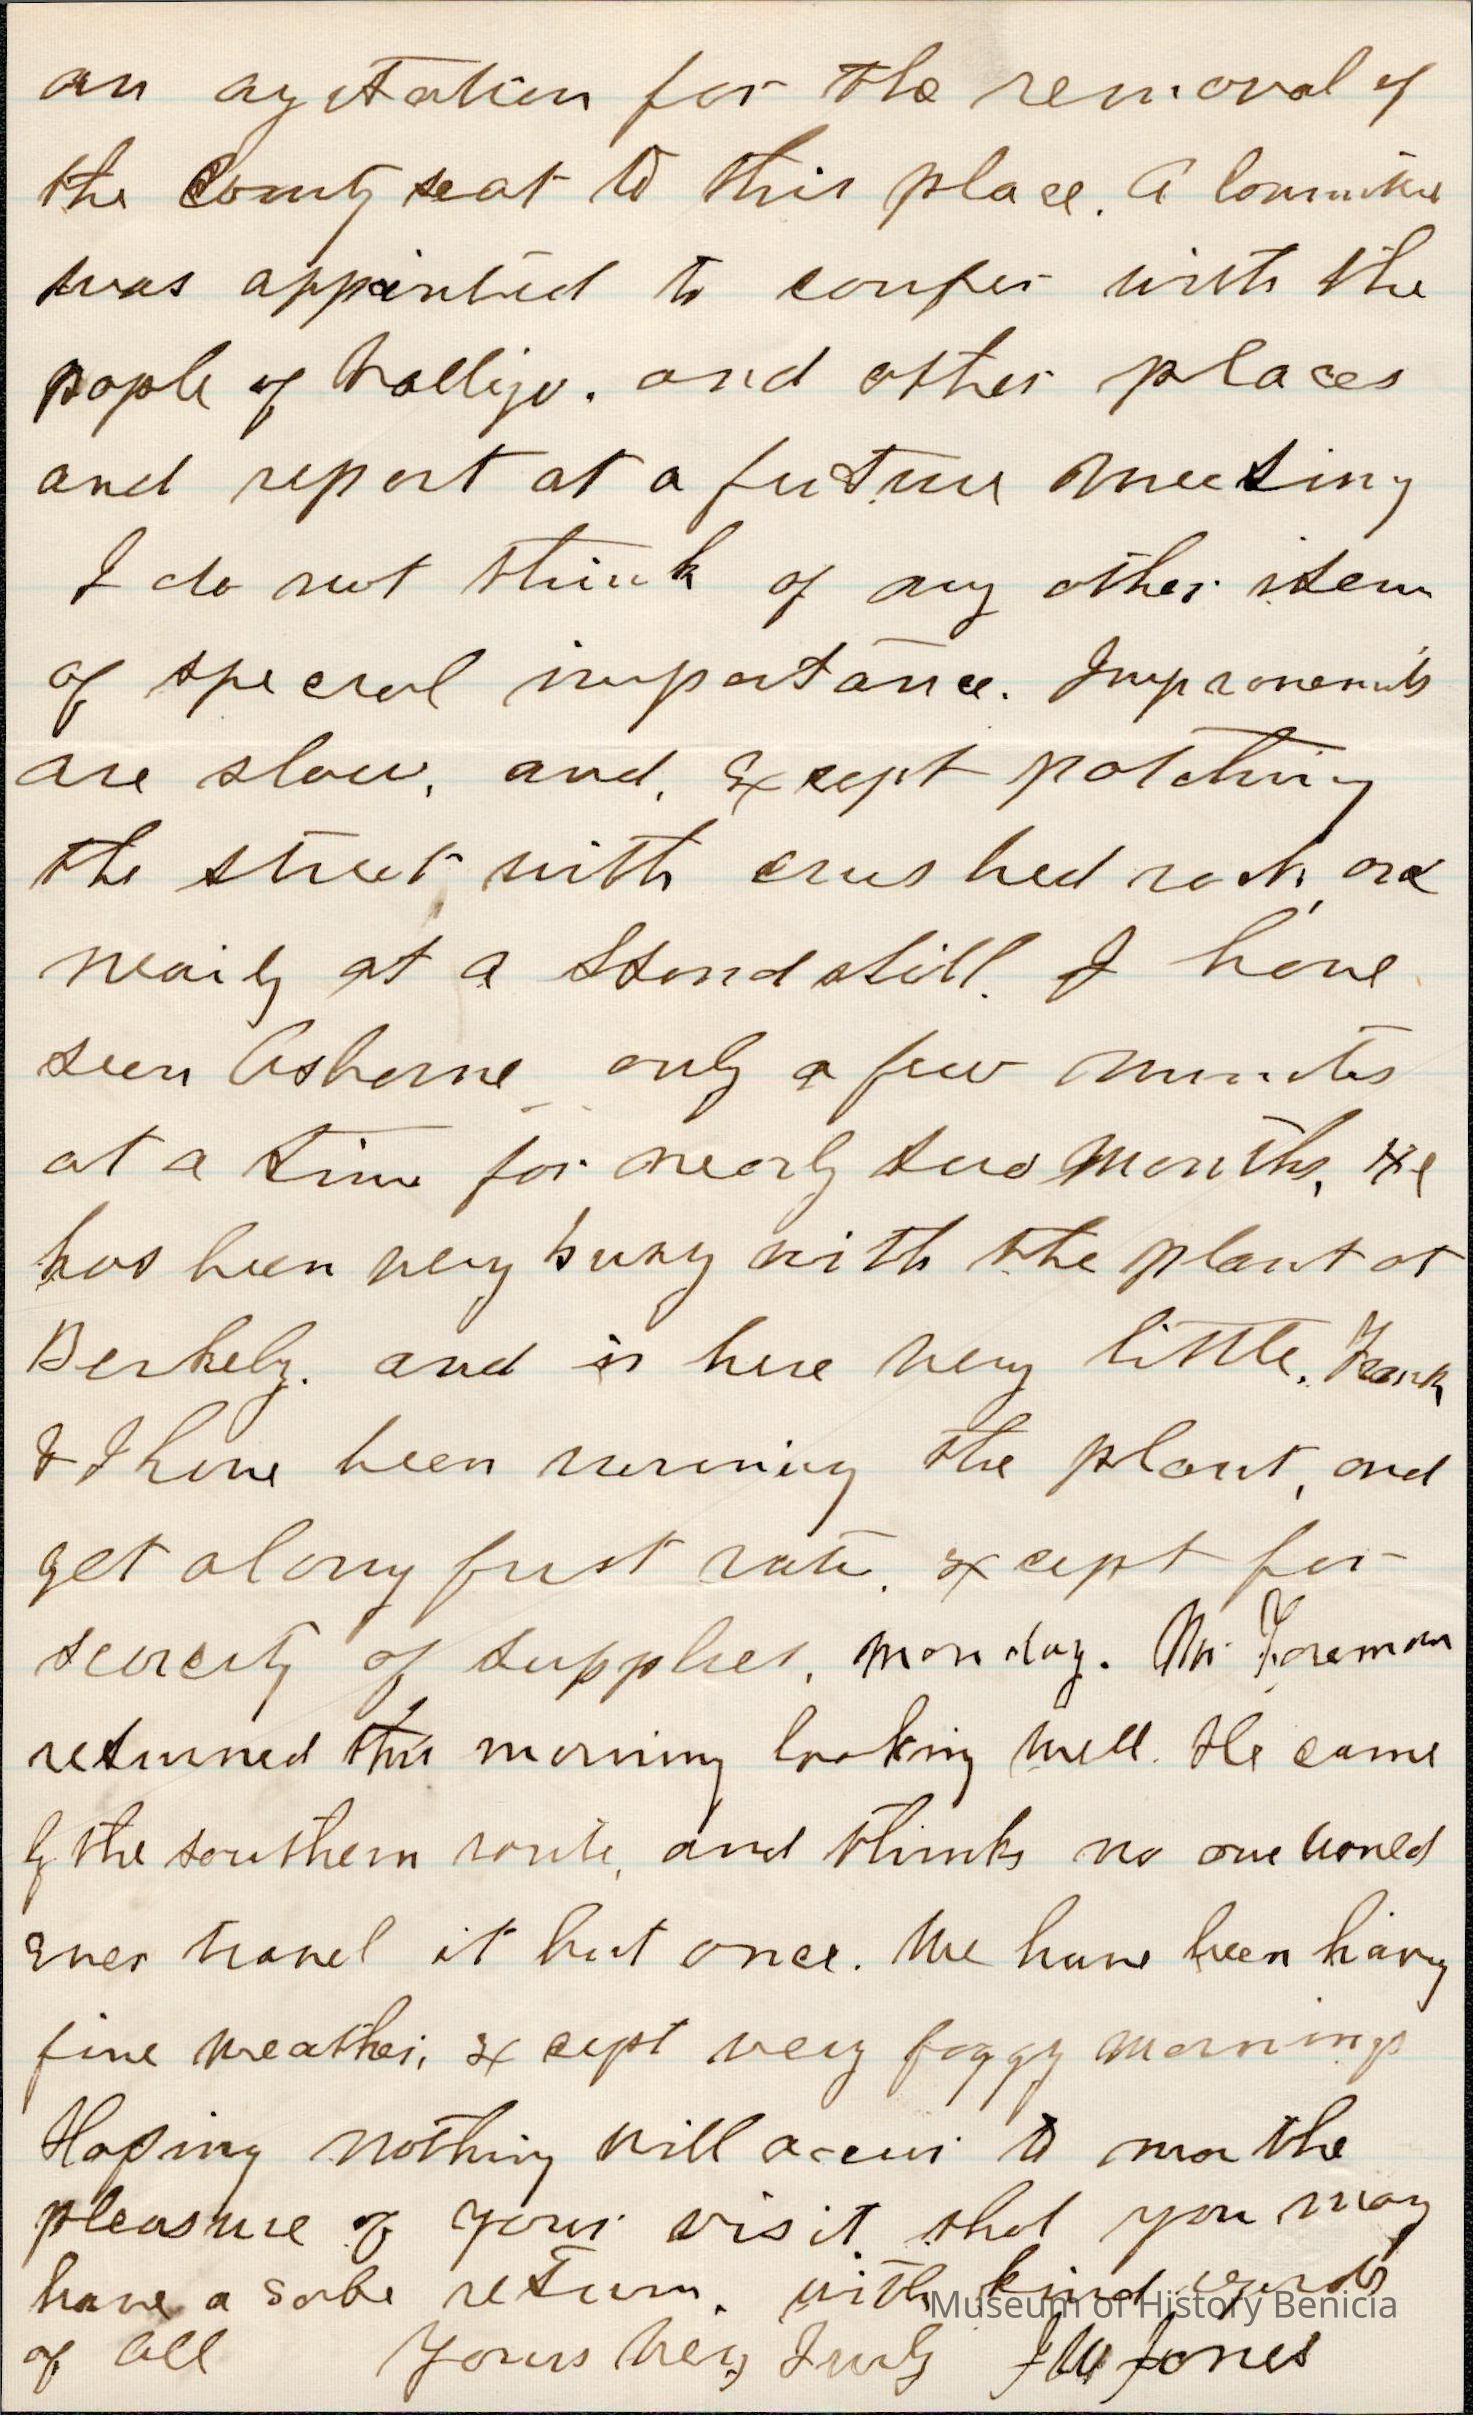 an agitation for the removal of
the County seat to this place. A Committee
was appointed to confer with the
people of Vallejo. and other places
and report at a future meeting
I do not think of any other item
of special importance. Improvements
are slow, and, except patching
the street with crushed rock, are
nearly at a stand still. I have
seen Osborne only a few minutes
at a time for nearly two months, He
has been very busy with the plant at
Berkely. and is here very little. Frank
& I have been running the plant, and
get along first rate. except for
scarcity of supplies, Monday. Mr. Foreman
returned this morning looking well. He came
by the southern route, and thinks no one would
ever travel it but once. We have been having
fine weather, except very foggy mornings
Hoping nothing will occur to mar the
pleasure of your visit that you may
have a safe return. with kind regards
of all Yours Very Truly J W Jones
Museum of History Benicia